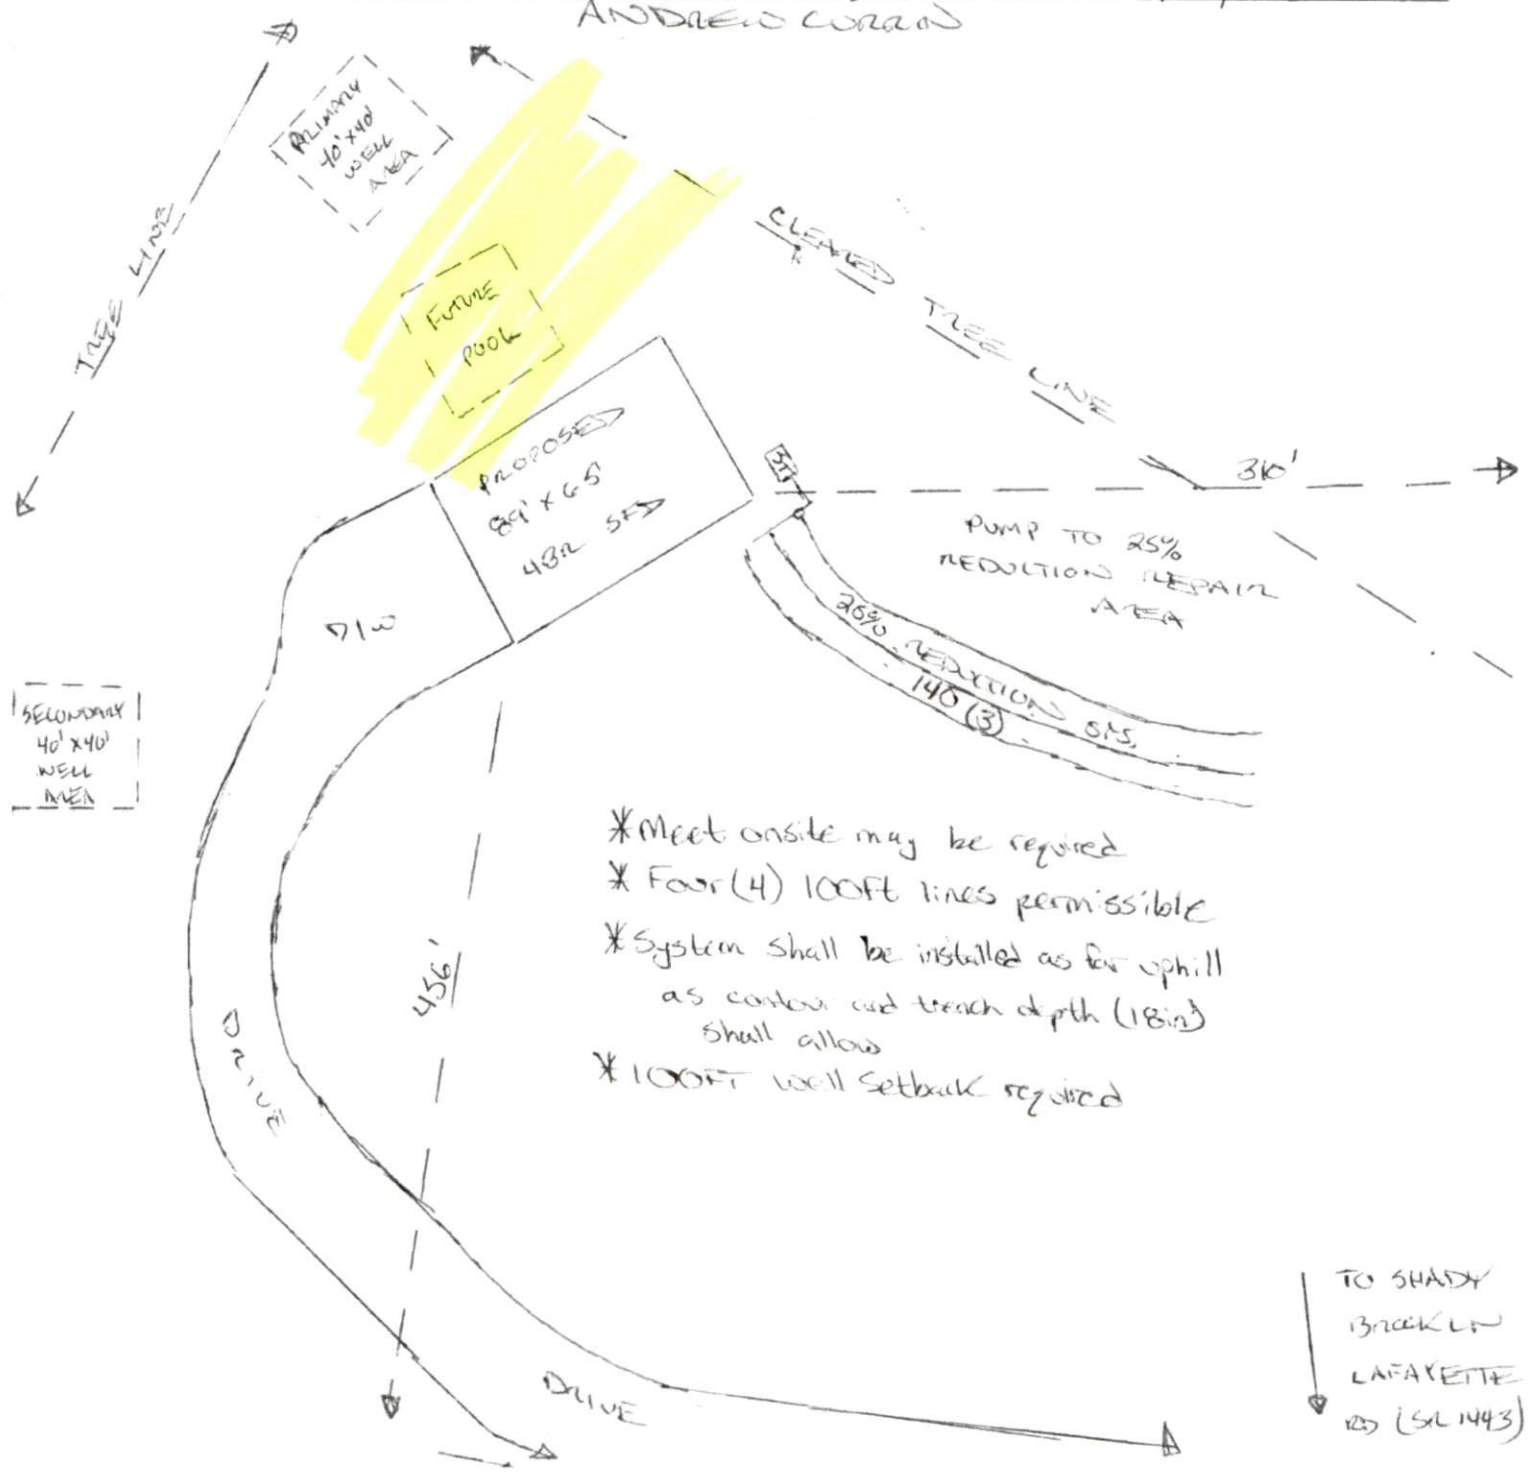 ANDREW CURRIN
PRIMARY
40' X 40'
WELL
AREA
TREE LINE
CLEARED TREE LINE
FUTURE
POOL
PROPOSED
89' X 65'
4BR SFD
ST
310'
PUMP TO 25%
REDUCTION REPAIR
AREA
D/W
25% REDUCTION SYS.
140 (3)
SECONDARY
40' X 40'
WELL
AREA
*Meet onsite may be required
* Four (4) 100Ft lines permissible
*System shall be installed as far uphill
as contour and trench depth (18in)
shall allow
* 100FT well Setback required
456'
DRIVE
DRIVE
TO SHADY
BROOK LN
LAFAYETTE
RD (SR 1443)